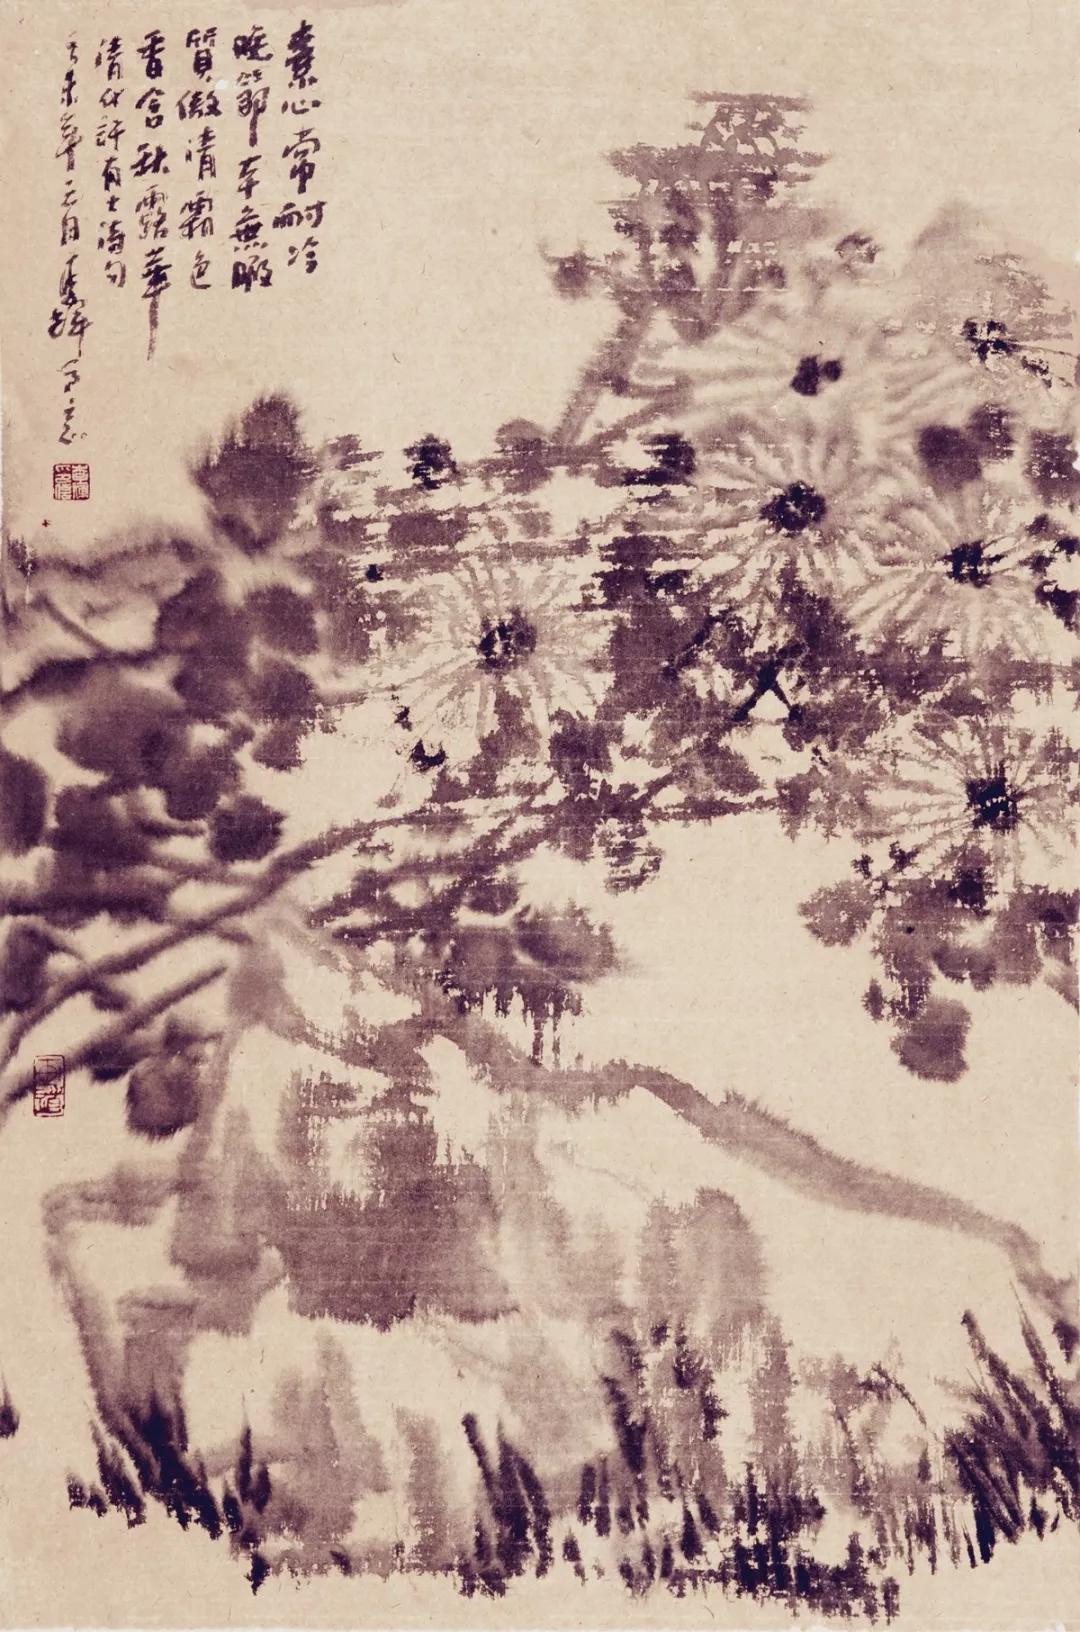 素心常耐冷
晚節本無瑕
質傲清霜色
香含秋露華
清代許有士詩句
辛未年元月